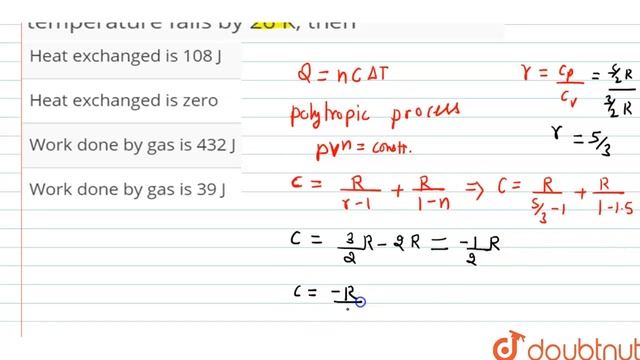 temperature falls by 26 K, then
Heat exchanged is 108 J
Heat exchanged is zero
Work done by gas is 432 J
Work done by gas is 39 J
Q = nCΔT
polytropic process
pvⁿ = constt.
r = Cp/Cv = 5/2 R / 3/2 R
r = 5/3
C = R/r-1 + R/1-n ⇒ C = R/5/3-1 + R/1-1.5
C = 3/2 R - 2R = -1/2 R
C = -R/
doubtnut